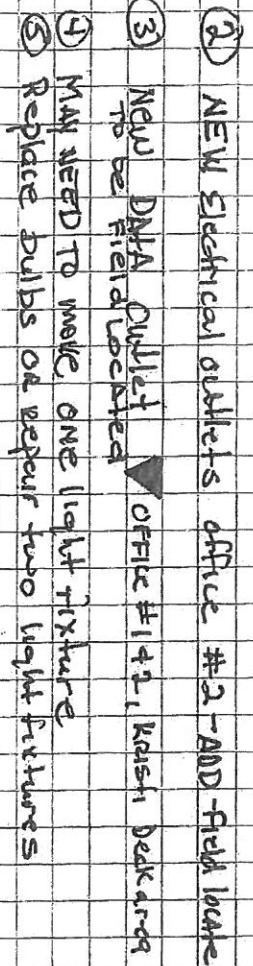 ② NEW Electrical outlets office #2 - ADD field locate
③ New DATA Outlet ▼ OFFICE #1+2, Kristi Desk area
To be Field Located
④ MAY NEED TO move one light fixture
⑤ Replace bulbs or repair two light fixtures